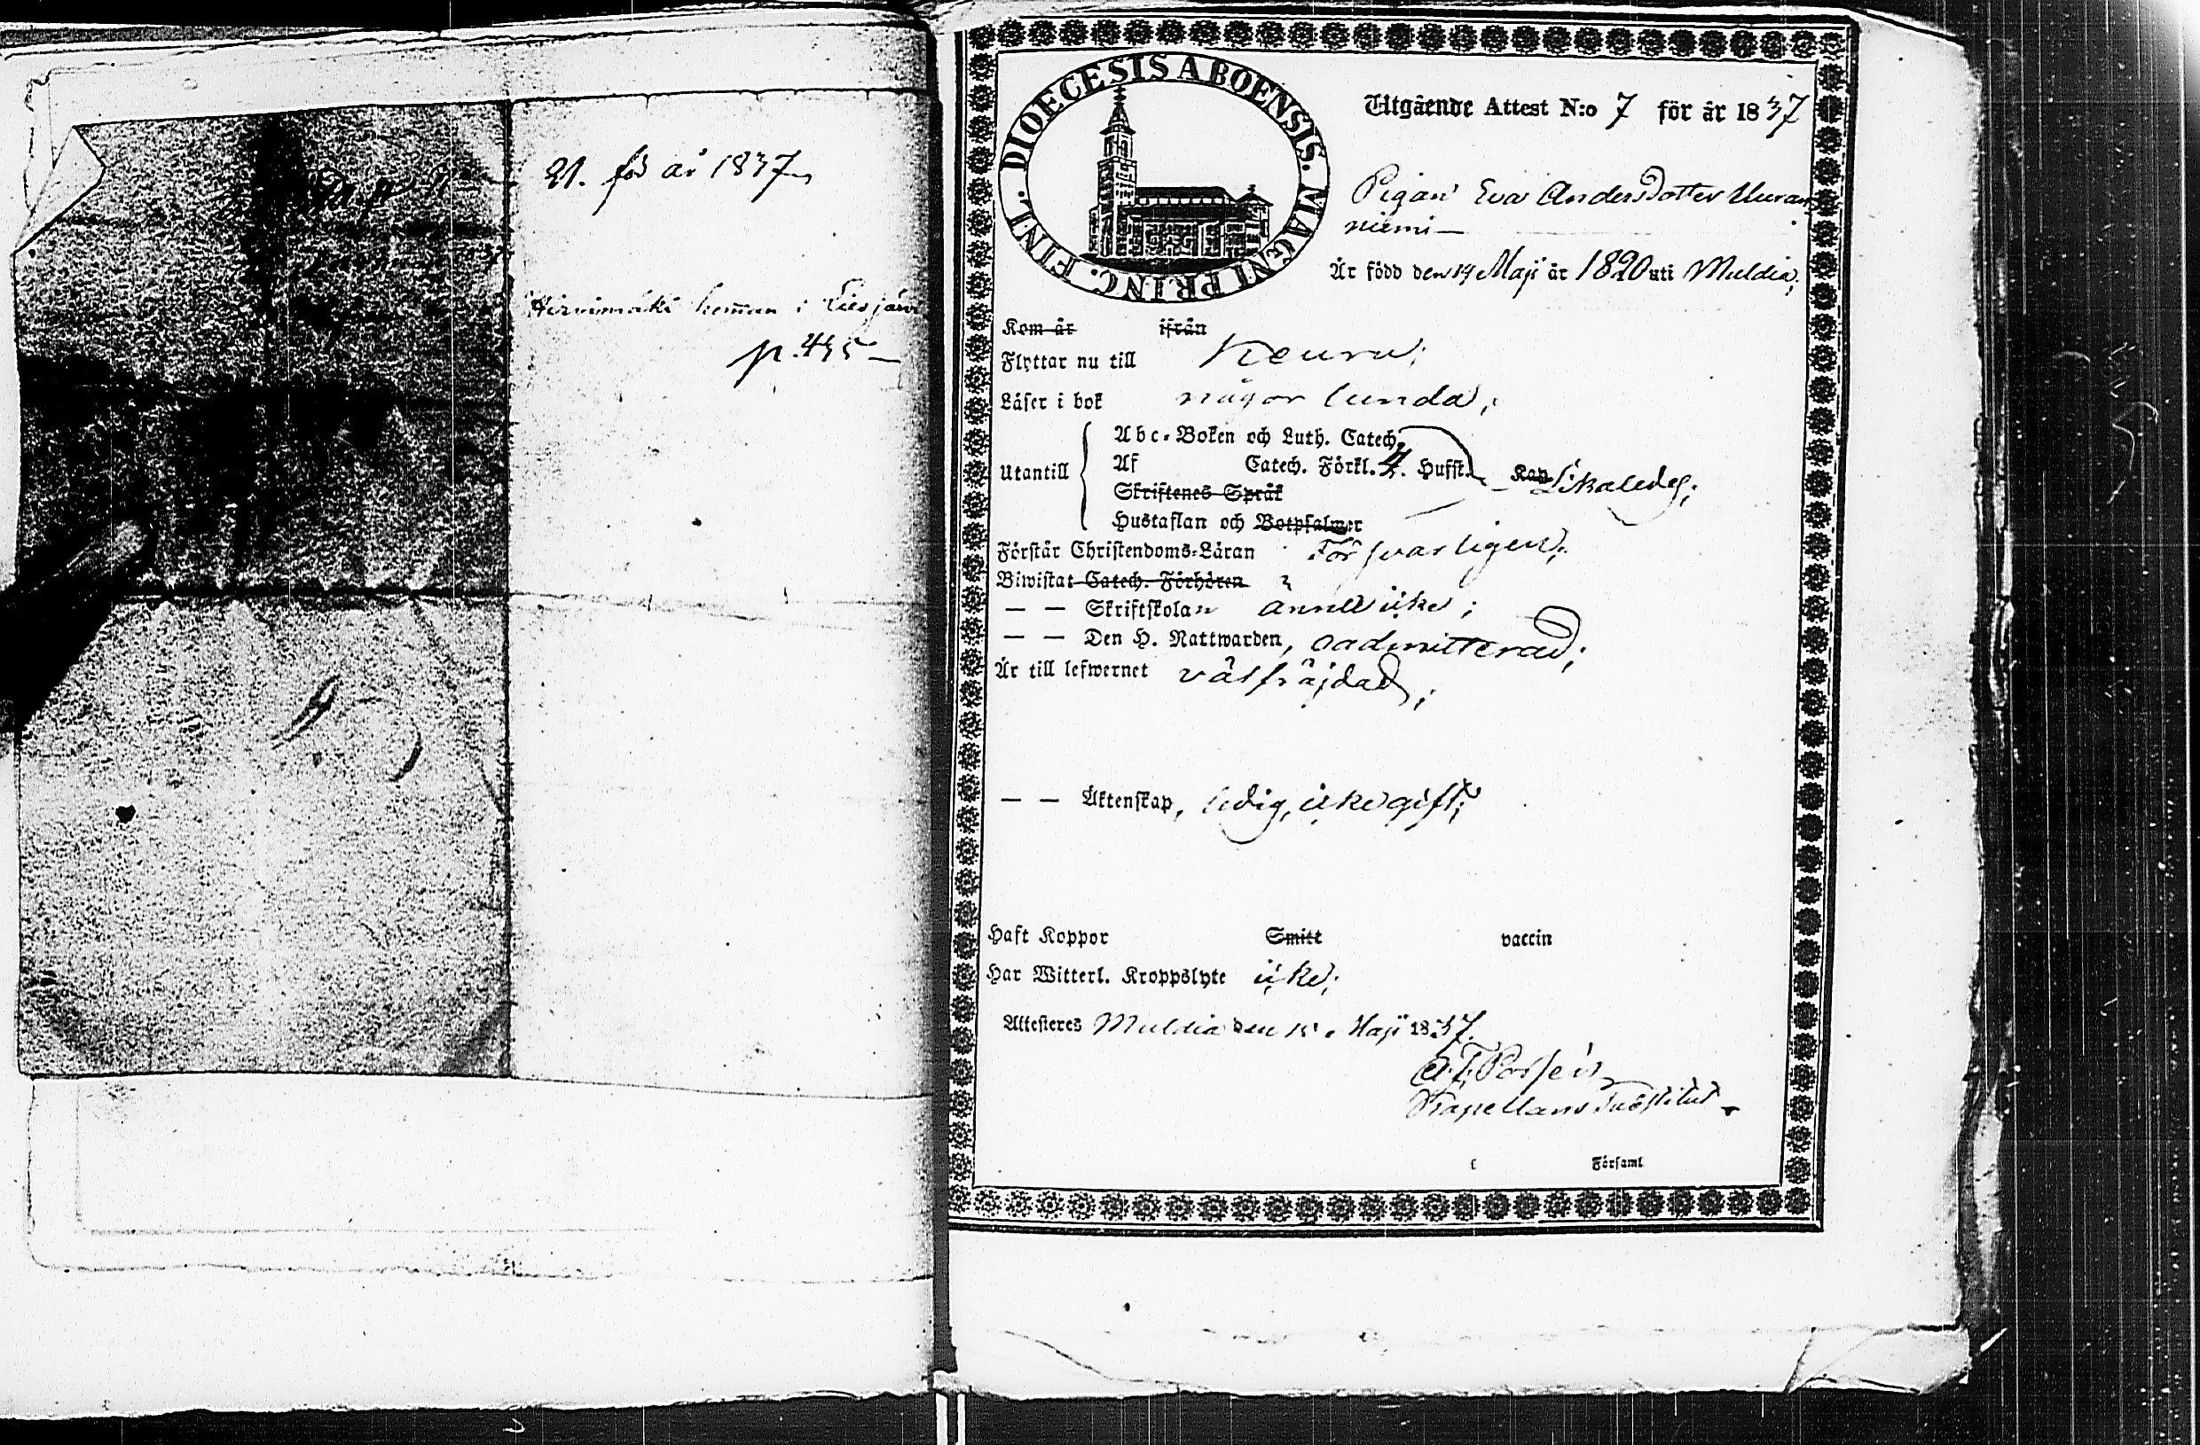 21. för år 1837
Hirvimäki hemman i Liesjärvi
p. 435
DIOECESIS ABOENSIS. MAGNI PRINC. FINL.
Utgående Attest N:o 7 för år 1837
Pigan Eva Andersdotter Uuran
niemi
Är född den 14 Maji år 1820 uti Muldia;
Kom år ifrån
Flyttar nu till Keuru;
Läser i bok någor lunda;
Utantill
Abc-Boken och Luth. Catech.
Af Catech. Förkl. 4. Hufst. Kap Likaledes;
Skriftenes Språk
Hustaflan och Botpsalmer
Förstår Christendoms-Läran Försvarligen;
Biwistat Catech. Förhören
— — Skriftskolan ännu icke;
— — Den H. Nattwarden, oadmitterad;
Är till lefwernet välfräjdad;
— — Äktenskap, ledig, icke gift;
Haft Koppor Smitt vaccin
Har Witterl. Kroppslyte icke;
Attesteres Muldia den 15 Maji 1837.
Kapellans Substitut
Församl